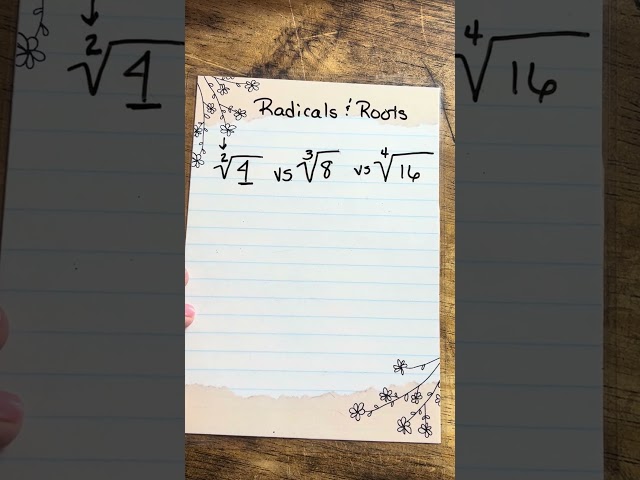 Radicals & Roots
²√4 vs ³√8 vs ⁴√16